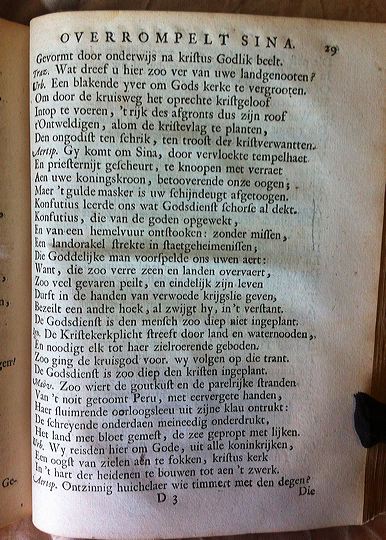 OVERROMPELT SINA. 29
Gevormt door onderwijs na kristus Godlik beelt.
Traz. Wat dreef u hier zoo ver van uwe landgenooten?
Urb. Een blakende yver om Gods kerke te vergrooten.
Om door de kruisweg het oprechte kristgeloof
Intop te voeren, 't rijk des afgronts dus zijn roof
t'Ontweldigen, alom de kristevlag te planten,
Den ongodist ten schrik, ten troost der kristverwantten.
Aertsp. Gy komt om Sina, door vervloekte tempelhaet
En priesternijt gescheurt, te knoopen met verraet
Aen uwe koningskroon, betooverende onze oogen;
Maer 't gulde masker is uw schijndeugt afgetoogen.
Konfutius leerde ons wat Godsdienst schorse al dekt.
Konfutius, die van de goden opgewekt,
En van een hemelvuur ontstooken: zonder missen,
Een landorakel strekte in staetgeheimenissen;
Die Goddelijke man voorspelde ons uwen aert:
Want, die zoo verre zeen en landen overvaert,
Zoo veel gevaren peilt, en eindelijk zijn leven
Darft in de handen van verwoede krijgslie geven,
Bezeilt een andre hoek, al zwijgt hy, in 't verstant.
De Godsdienst is den mensch zoo diep niet ingeplant.
De Kristekerkplicht streeft door land en waternooden,
En noodigt elk tot haer zielroerende geboden.
Zoo ging de kruisgod voor. wy volgen op die trant.
De Godsdienst is zoo diep den kristen ingeplant.
Mabv. Zoo wiert de goutkust en de parelrijke stranden
Van 't noit getoomt Peru, met eervergete handen,
Haer sluimrende oorloogsleeu uit zijne klau ontrukt:
De schreyende onderdaen meineedig onderdrukt,
Het land met bloet gemest, de zee gepropt met lijken.
Urb. Wy reisden hier om Gode, uit alle koninkrijken,
Een oogst van zielen aen te fokken, kristus kerk
In 't hart der heidenen te bouwen tot aen 't zwerk.
Aertsp. Ontzinnig huichelaer wie timmert met den degen?
D 3 Die